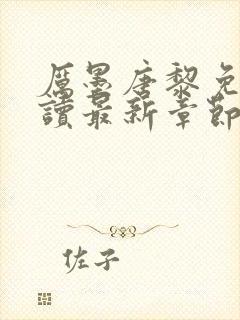 厲墨唐黎免
讀最新章節
佐子